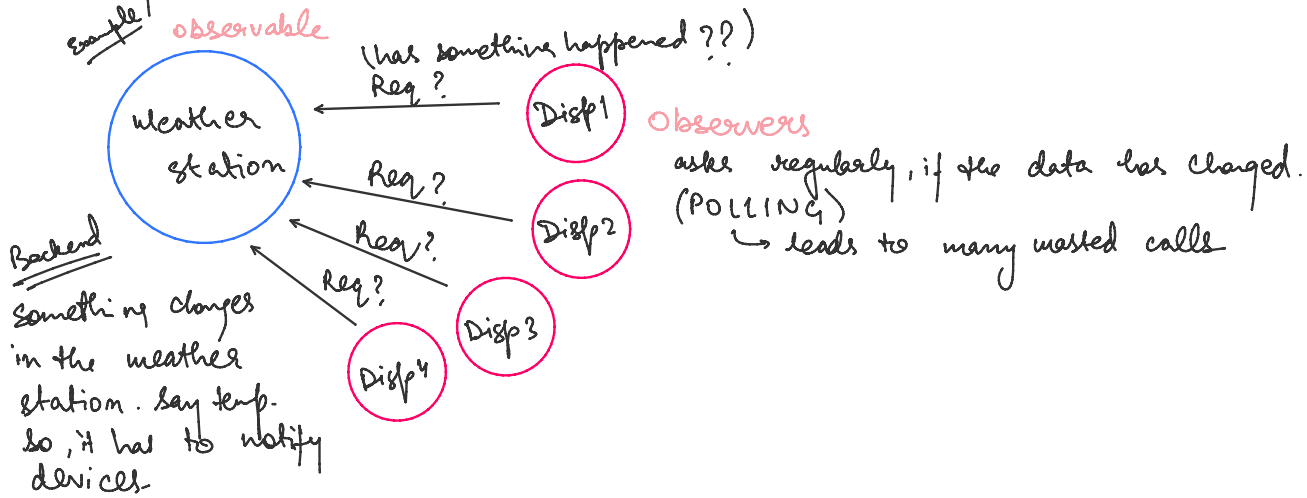 Example!
observable
(has something happened ??)
Req ?
Weather
station
Disp1
Observers
asks regularly, if the data has changed.
(POLLING)
↳ leads to many wasted calls
Req ?
Disp2
Req ?
Disp3
Req ?
Disp4
Backend
Something changes
in the weather
station. Say temp.
so, it has to notify
devices.